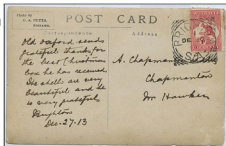 POST CARD
Correspondence
Address
Old Oxford sends
grateful thanks for
the best Christmas
box he has received
The shells are very
beautiful and he
is very grateful
Dec-27-13
A. Chapman
Chapmanton
Mr Hawker